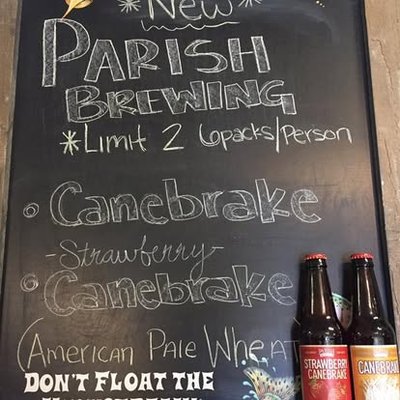 *New*
PARISH
BREWING
*Limit 2 6packs/Person
Canebrake
-Strawberry-
Canebrake
(American Pale Wheat
DON'T FLOAT THE
STRAWBERRY
CANEBRAKE
CANEBRAKE